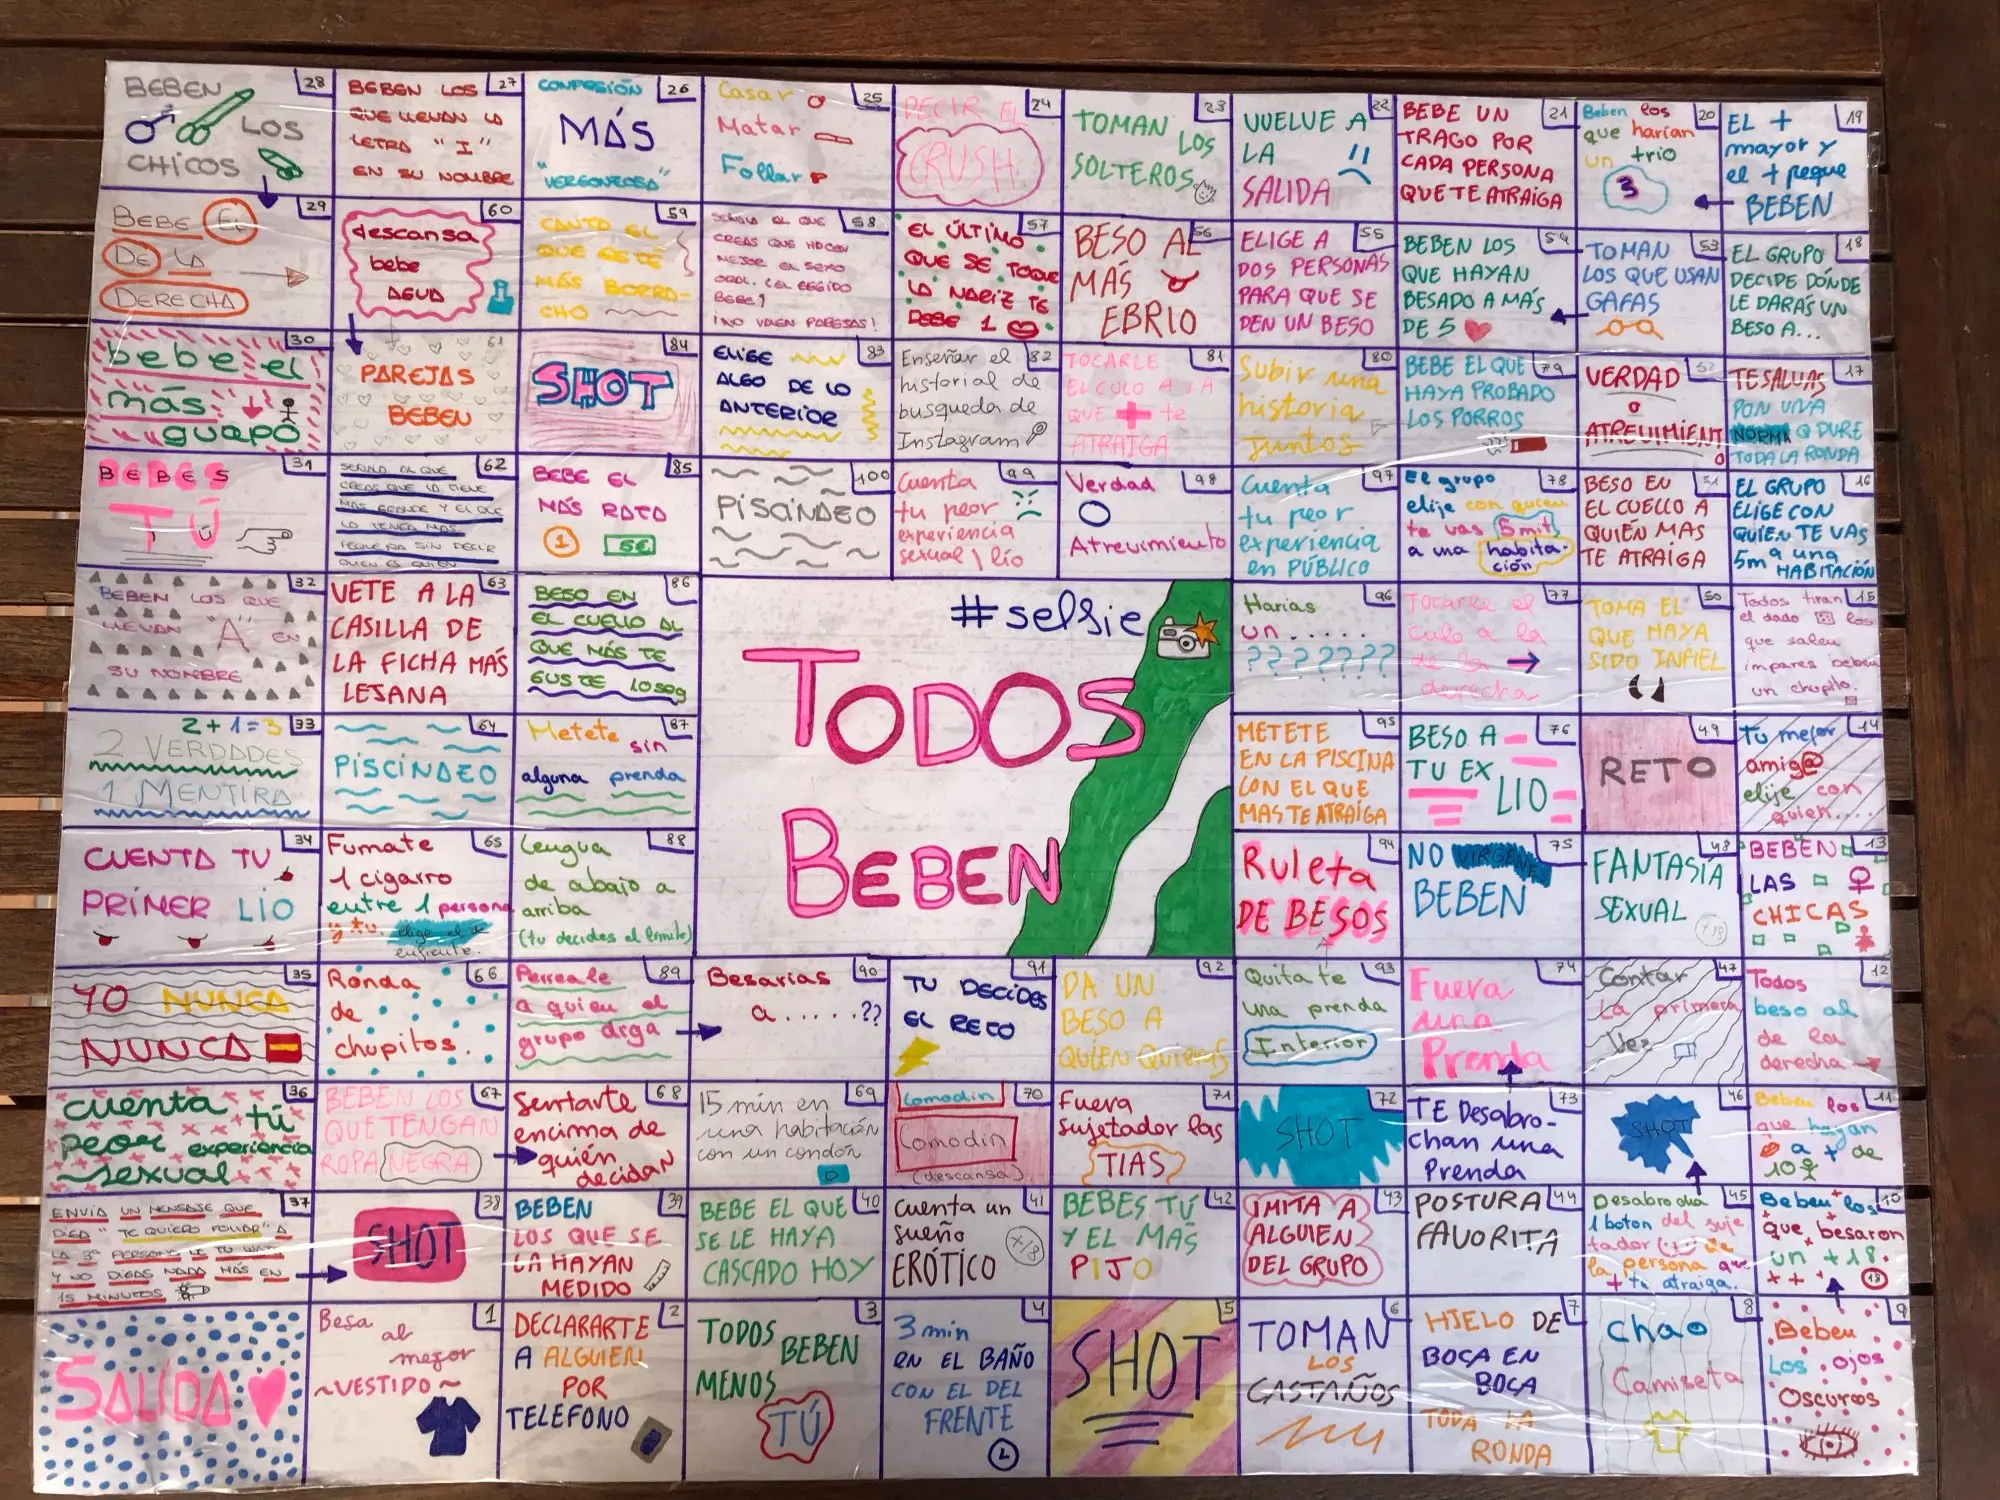 BEBEN
LOS
CHICOS
28
BEBEN LOS
QUE LLEVAN LA
LETRA "I"
EN SU NOMBRE
27
CONFESIÓN
MÁS
"VERGONZOSA"
26
Casar
Matar
Follar
25
DECIR EL
CRUSH
24
TOMAN
LOS
SOLTEROS
23
VUELVE A
LA
SALIDA
22
BEBE UN
TRAGO POR
CADA PERSONA
QUE TE ATRAIGA
21
Beben los
que harían
un trio
3
20
EL +
mayor y
el + peque
BEBEN
19
BEBE EL
DE LA
DERECHA
29
descansa
bebe
AGUA
60
CANTA EL
QUE ESTÉ
MÁS BORRA-
CHO
59
SEÑALA AL QUE
CREAS QUE HACEN
MEJOR EL SEXO
ORAL. (EL ELEGIDO
BEBE)
¡NO VALEN PAREJAS!
58
EL ÚLTIMO
QUE SE TOQUE
LA NARIZ TE
DEBE 1
57
BESO AL
MÁS
EBRIO
56
ELIGE A
DOS PERSONAS
PARA QUE SE
DEN UN BESO
55
BEBEN LOS
QUE HAYAN
BESADO A MÁS
DE 5
54
TOMAN
LOS QUE USAN
GAFAS
53
EL GRUPO
DECIDE DÓNDE
LE DARÁS UN
BESO A...
18
bebe el
más
guapo
30
PAREJAS
BEBEN
61
SHOT
84
ELIGE
ALGO DE LO
ANTERIOR
83
Enseñar el
historial de
busqueda de
Instagram
82
TOCARLE
EL CULO A LA
QUE + te
ATRAIGA
81
Subir una
historia
juntos
80
BEBE EL QUE
HAYA PROBADO
LOS PORROS
79
VERDAD
o
ATREVIMIENTO
52
TE SALVAS
PON UNA
NORMA Q DURE
TODA LA RONDA
17
BEBES
TÚ
31
SEÑALA AL QUE
CREAS QUE LA TIENE
MAS GRANDE Y EL QUE
LA TENGA MAS
PEQUEÑA SIN DECIR
QUIEN ES QUIEN
62
BEBE EL
MÁS RATA
1
5€
85
PISCINDEO
100
Cuenta
tu peor
experiencia
sexual \ lío
99
Verdad
O
Atrevimiento
98
Cuenta
tu peor
experiencia
en PÚBLICO
97
El grupo
elije con quien
te vas 5 mit
a una habita-
ción
78
BESO EN
EL CUELLO A
QUIÉN MAS
TE ATRAIGA
51
EL GRUPO
ELIGE CON
QUIEN TE VAS
5m a una
HABITACIÓN
16
BEBEN LOS QUE
LLEVAN "A" EN
SU NOMBRE
32
VETE A LA
CASILLA DE
LA FICHA MÁS
LEJANA
63
BESO EN
EL CUELLO AL
QUE MÁS TE
GUSTE 10seg
86
#selfie
TODOS
BEBEN
Harias
un.....
???????
96
Tocarle el
culo a la
de la
derecha
77
TOMA EL
QUE HAYA
SIDO INFIEL
50
Todos tiran
el dado los
que salen
impares beben
un chupito.
15
2+1=3
2 VERDADES
1 MENTIRA
33
PISCINDEO
64
Metete sin
alguna prenda
87
METETE
EN LA PISCINA
CON EL QUE
MAS TE ATRAIGA
95
BESO A
TU EX
LIO
76
RETO
49
Tu mejor
amig@
elije con
quien....
14
CUENTA TU
PRIMER LIO
34
Fumate
1 cigarro
entre 1 persona
y tu.
65
Lengua
de abajo a
arriba
(tu decides el limite)
88
Ruleta
DE BESOS
94
NO VIRGENES
BEBEN
75
FANTASÍA
SEXUAL
+18
48
BEBEN
LAS
CHICAS
13
YO NUNCA
NUNCA
35
Ronda
de
chupitos.
66
Perreale
a quien el
grupo diga
89
Besarias
a.....??
90
TU DECIDES
EL RETO
91
DA UN
BESO A
QUIEN QUIERAS
92
Quitate
una prenda
Interior
93
Fuera
una
Prenda
74
Contar
La primera
Vez
47
Todos
beso al
de la
derecha
12
cuenta tú
peor experiencia
sexual
36
BEBEN LOS
QUE TENGAN
ROPA NEGRA
67
Sentarte
encima de
quién
decidan
68
15 min en
una habitación
con un condón
69
Comodin
Comodin
(descansa)
70
Fuera
sujetador las
TIAS
71
SHOT
72
TE Desabro-
chan una
Prenda
73
SHOT
46
Beben los
que hayan
a + de
10
11
ENVIA UN MENSAJE QUE
DIGA "TE QUIERO FOLLAR" A
LA 3ª PERSONA DE TU WATS
Y NO DIGAS NADA MÁS EN
15 MINUTOS
37
SHOT
38
BEBEN
LOS QUE SE
LA HAYAN
MEDIDO
39
BEBE EL QUE
SE LE HAYA
CASCADO HOY
40
Cuenta un
sueño
ERÓTICO
+18
41
BEBES TÚ
Y EL MÁS
PIJO
42
IMITA A
ALGUIEN
DEL GRUPO
43
POSTURA
FAVORITA
44
Desabrocha
1 boton del suje
tador de
la persona que
+ te atraiga.
45
Beben los
que besaron
un +18.
18
10
SALIDA
Besa al
mejor
~VESTIDO~
1
DECLARARTE
A ALGUIEN
POR
TELEFONO
2
TODOS
BEBEN
MENOS
TÚ
3
3 min
EN EL BAÑO
CON EL DEL
FRENTE
4
SHOT
5
TOMAN
LOS
CASTAÑOS
6
HIELO DE
BOCA EN
BOCA
TODA LA
RONDA
7
Chao
Camiseta
8
Beben
Los ojos
Oscuros
9